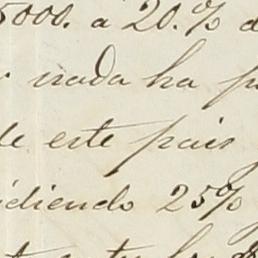 5000. a 20.% d
nada ha p
de este pais
idiendo 25%